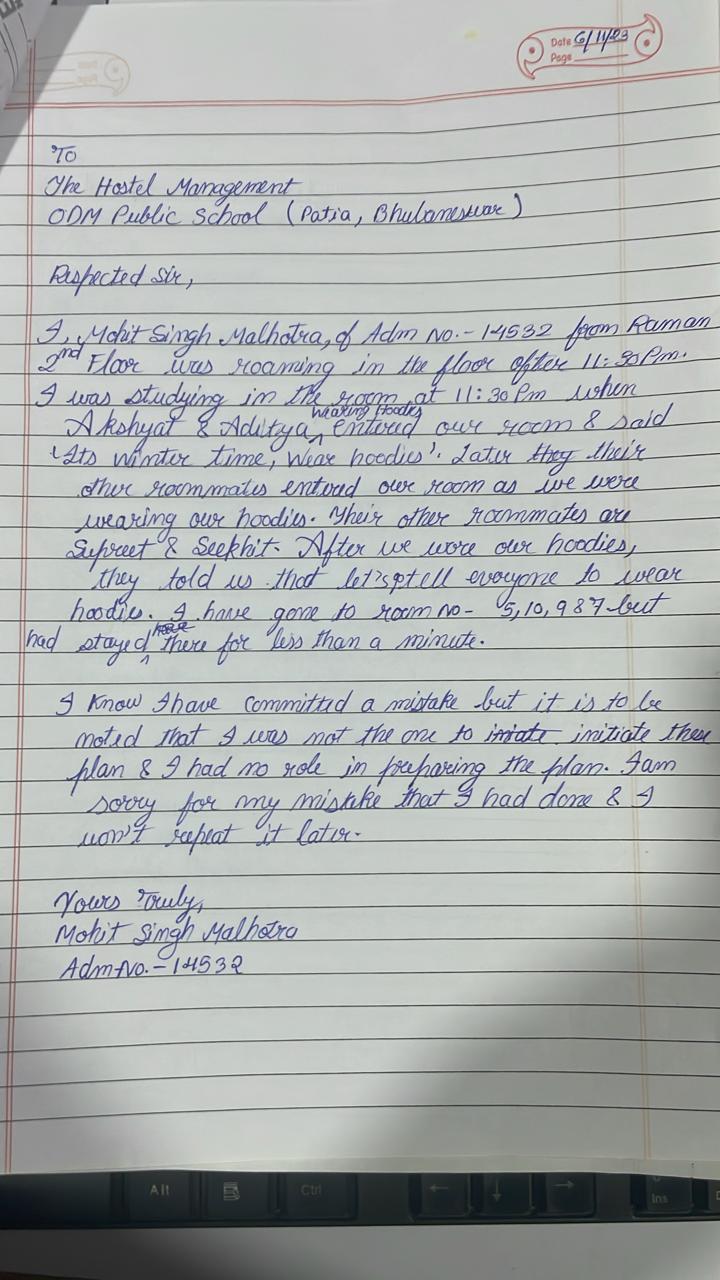 Date 6/11/23
Page
To
The Hostel Management
ODM Public School (Patia, Bhubaneswar)
Respected Sir,
I, Mohit Singh Malhotra, of Adm No.- 14532 from Raman
2nd Floor was roaming in the floor after 11:30 Pm.
I was studying in the room at 11:30 Pm when
Akshyat & Aditya wearing Hoodies entered our room & said
'Its winter time, Wear hoodies'. Later they their
other roommates entered our room as we were
wearing our hoodies. Their other roommates are
Supreet & Seekhit. After we wore our hoodies,
they told us that let's tell everyone to wear
hoodie. I have gone to room no- 5, 10, 9 8 7 but
had stayed there for less than a minute.
I Know I have committed a mistake but it is to be
noted that I was not the one to initiate these
plan & I had no role in preparing the plan. I am
sorry for my mistake that I had done & I
won't repeat it later.
Yours Truly,
Mohit Singh Malhotra
Adm-No.- 14532
Alt
Ctrl
Ins